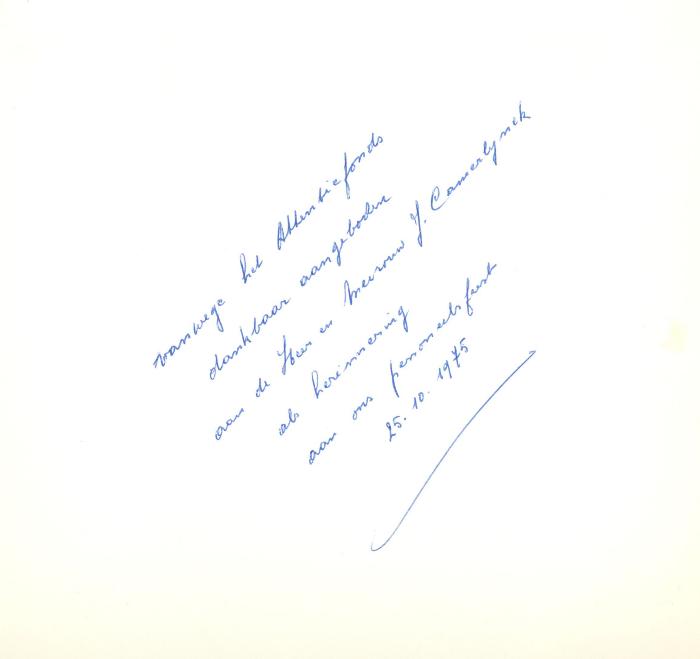 vanwege het Attentiefonds
dankbaar aangeboden
aan de Heer en Mevrouw J. Camerlynck
als herinnering
aan ons personeelsfeest
25.10.1975